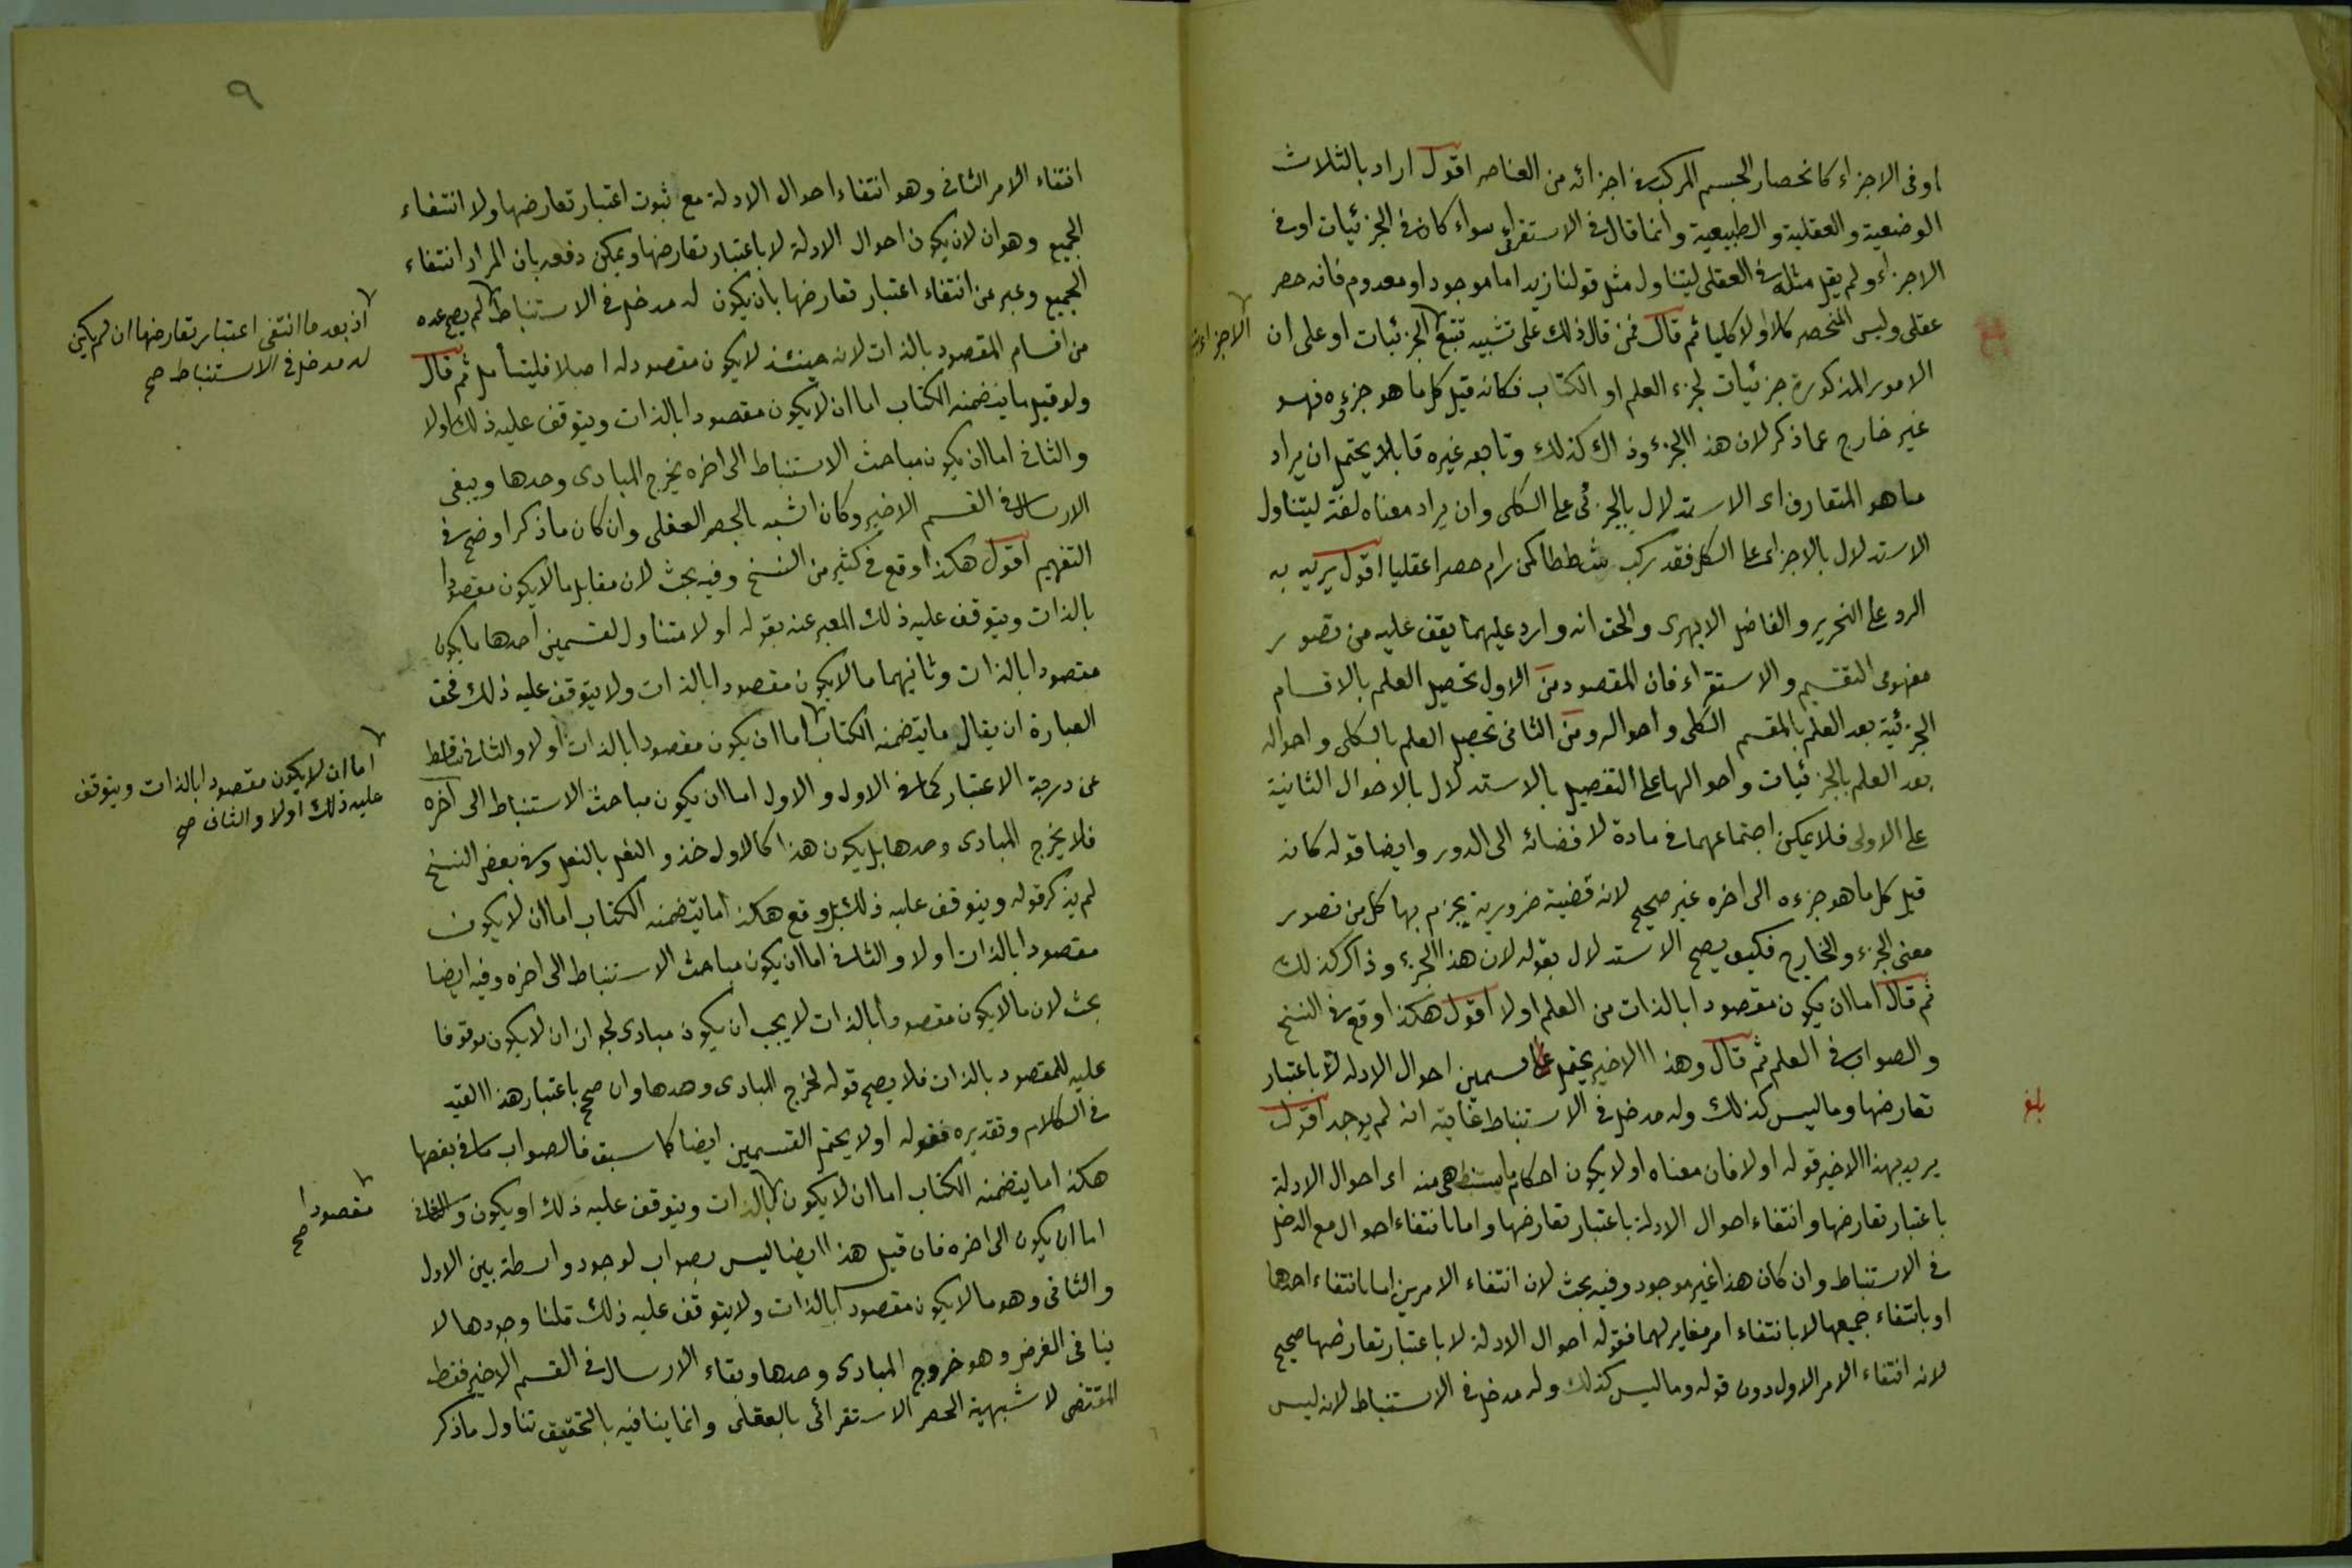 او فى الاجزاء كانحصار الجسم المركب فى اجزائه من العناصر اقول اراد بالثلاث
الوضعية والعقلية والطبيعية وانما قال فى الاستقرائى سواء كان فى الجزئيات او فى
الاجزاء ولم يقل مثله فى العقلى ليتناول مثل قولنا زيد اما موجود او معدوم فانه حصر
عقلى وليس المنحصر كلا ولا كليا ثم قال فمن قال ذلك على تشبيه تتبع الجزئيات او على ان
الامور المذكورة جزئيات لجزء العلم او الكتاب فكانه قيل كل ما هو جزءه فهو
غير خارج عما ذكر لان هذا الجزء وذاك كذلك وتابعه غيره قايلا يحتمل ان يراد
ما هو المتعارف اى الاستدلال بالجزئى على الكلى وان يراد معناه لغة ليتناول
الاستدلال بالاجزاء على الكل فقد ركب شططا كمن رام حصرا عقليا اقول يريد به
الرد على النحرير والفاضل الابهرى والحق انه وارد عليهما يقف عليه من تصور
مفهومى التقسيم والاستقراء فان المقصود من الاول تحصيل العلم بالاقسام
الجزئية بعد العلم بالمقسم الكلى واحواله ومن الثانى تحصيل العلم بالكلى واحواله
بعد العلم بالجزئيات واحوالها على التفصيل بالاستدلال بالاحوال الثانية
على الاولى فلا يمكن اجتماعهما فى مادة لافضائه الى الدور وايضا قوله كانه
قيل كل ما هو جزءه الى اخره غير صحيح لانه قضية ضرورية يجزم بها كل من تصور
معنى الجزء والخارج فكيف يصح الاستدلال بقوله لان هذا الجزء وذاك كذلك
ثم قال اما ان يكون مقصودا بالذات من العلم اولا اقول هكذا وقع فى النسخ
والصواب فى العلم ثم قال وهذا الاخير يحتمل قسمين احوال الادلة لا باعتبار
تعارضها وما ليس كذلك وله مدخل فى الاستنباط غايته انه لم يوجد اقول
يريد بهذا الاخير قوله اولا فان معناه اولا يكون احكام ما يستنبط هى منه اى احوال الادلة
باعتبار تعارضها وانتفاء احوال الادلة باعتبار تعارضها واما بانتفاء احوال مع الدخل
فى الاستنباط وان كان هذا غير موجود وفيه بحث لان انتفاء الامرين اما بانتفاء احدهما
او بانتفاء جميعها لا بانتفاء امر مغاير لهما فقوله احوال الادلة لا باعتبار تعارضها صحيح
لانه انتفاء الامر الاول دون قوله وما ليس كذلك وله مدخل فى الاستنباط لانه ليس
بلغ
٩
انتفاء الامر الثانى وهو انتفاء احوال الادلة مع ثبوت اعتبار تعارضها ولا انتفاء
الجميع وهو ان لا يكون احوال الادلة لا باعتبار تعارضها ويمكن دفعه بان المراد انتفاء
الجميع وعبر عن انتفاء اعتبار تعارضها بان يكون له مدخل فى الاستنباط لم يصح عده
من اقسام المقصود بالذات لانه حينئذ لا يكون مقصودا له اصلا فليتأمل ثم قال
ولو قيل ما يتضمنه الكتاب اما ان لا يكون مقصودا بالذات ويتوقف عليه ذلك اولا
والثانى اما ان يكون مباحث الاستنباط الى اخره يخرج المبادى وحدها ويبقى
الارسال فى القسم الاخير وكان اشبه بالحصر العقلى وان كان ما ذكر اوضح فى
التفهيم اقول هكذا وقع فى كثير من النسخ وفيه بحث لان مقابل ما لا يكون مقصودا
بالذات ويتوقف عليه ذلك المعبر عنه بقوله اولا متناول لقسمين احدهما ما يكون
مقصودا بالذات وثانيهما ما لا يكون مقصودا بالذات ولا يتوقف عليه ذلك فحق
العبارة ان يقال ما يتضمنه الكتاب اما ان يكون مقصودا بالذات اولا والثانى ساقط
عن درجة الاعتبار كما فى الاول والاول اما ان يكون مباحث الاستنباط الى اخره
فلا يخرج المبادى وحدها بل يكون هذا كالاول حذو النعل بالنعل وفى بعض النسخ
لم يذكر قوله ويتوقف عليه ذلك بل وقع هكذا ما يتضمنه الكتاب اما ان لا يكون
مقصودا بالذات اولا والثانى اما ان يكون مباحث الاستنباط الى اخره وفيه ايضا
بحث لان ما لا يكون مقصودا بالذات لا يجب ان يكون مبادى لجواز ان لا يكون موقوفا
عليه للمقصود بالذات فلا يصح قوله يخرج المبادى وحدها وان صح باعتبار هذا القيد
فى الكلام وتقديره فقوله اولا يحتمل القسمين ايضا كما سبق فالصواب ما فى بعضها
هكذا ما يتضمنه الكتاب اما ان لا يكون بالذات ويتوقف عليه ذلك او يكون والثانى
اما ان يكون الى اخره فان قيل هذا ايضا ليس بصواب لوجود واسطة بين الاول
والثانى وهو ما لا يكون مقصودا بالذات ولا يتوقف عليه ذلك قلنا وجودها لا
ينافى الغرض وهو خروج المبادى وحدها وبقاء الارسال فى القسم الاخير فقط
المقتضى لاشبهية الحصر الاستقرائى بالعقلى وانما ينافيه بالتحقيق تناول ما ذكر
اذ بعد ما انتفى اعتبار تعارضها ان لم يكن
له مدخل فى الاستنباط صح
اما ان لا يكون مقصودا بالذات ويتوقف
عليه ذلك اولا والثانى صح
مقصودا
صح